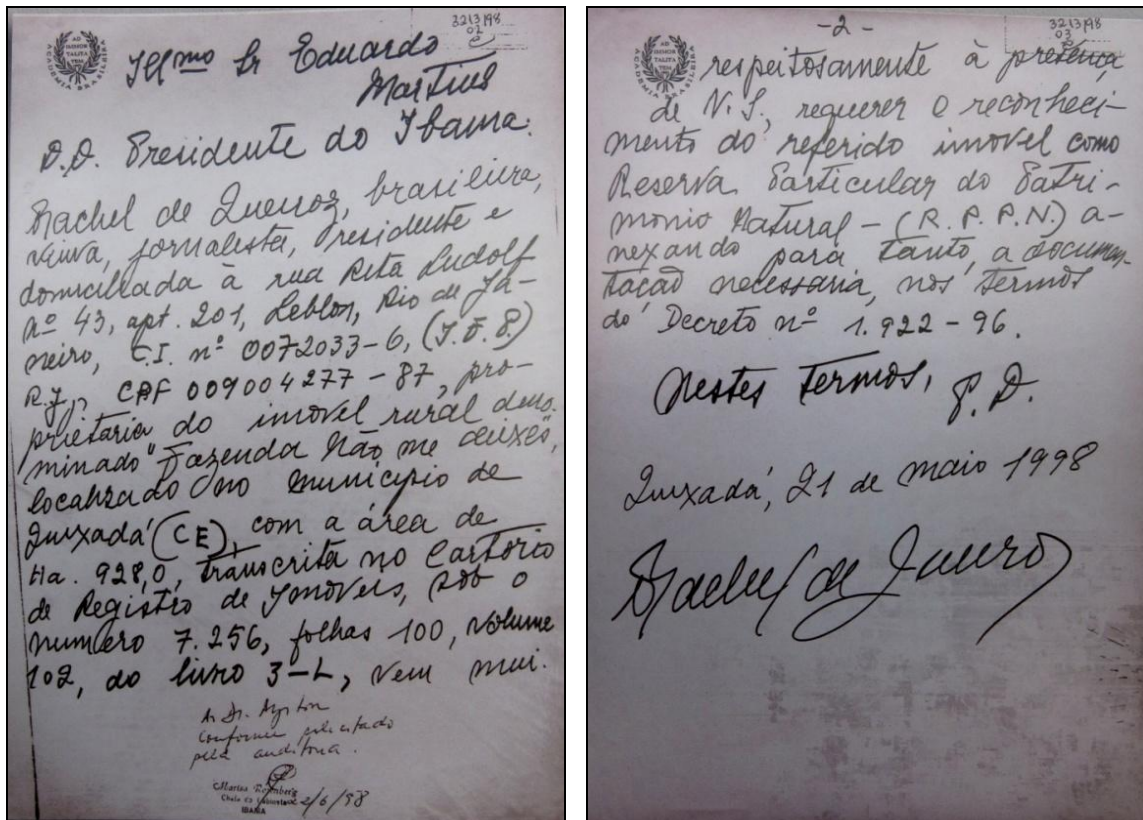 3213/98
02
AD
IMMOR
TALITA
TEM
ACADEMIA BRASILEIRA
Illmo Sr Eduardo
Martins
D.D. Presidente do Ibama.
Rachel de Queiroz, brasileira,
viuva, jornalista, residente e
domiciliada à rua Rita Ludolf
nº 43, apt. 201, Leblon, Rio de Ja-
neiro, C.I. nº 0072033-6, (I.F.P.)
R.J., CPF 009004277-87, pro-
prietaria do imovel rural deno-
minado "Fazenda Não me deixes",
localizado no municipio de
Quixadá (CE), com a área de
Ha. 928,0, transcrita no Cartorio
de Registro de Imóveis, sob o
numero 7.256, folhas 100, volume
102, do livro 3-L, vem mui.
Ao Dr. Ayrton
Conforme solicitado
pela auditoria.
Marisa
Chefe
IBAMA
2/6/98
-2-
3213/98
03
AD
IMMOR
TALITA
TEM
ACADEMIA BRASILEIRA
respeitosamente à presença
de V.S., requerer o reconheci-
mento do referido imovel como
Reserva Particular do Patri-
monio Natural - (R.P.P.N.) a-
nexando para tanto, a documen-
tação necessaria, nos termos
do Decreto nº 1.922-96.
Nestes termos,
P.D.
Quixadá, 21 de maio 1998
Rachel de Queiroz